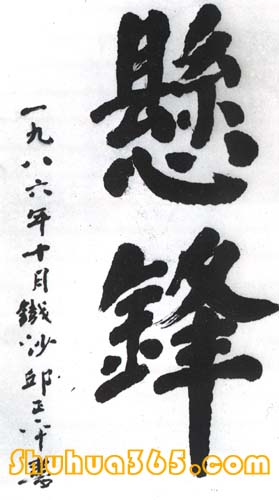 懸鋒
一九八六年十月鐵沙邱正平書
Shuhua365.com